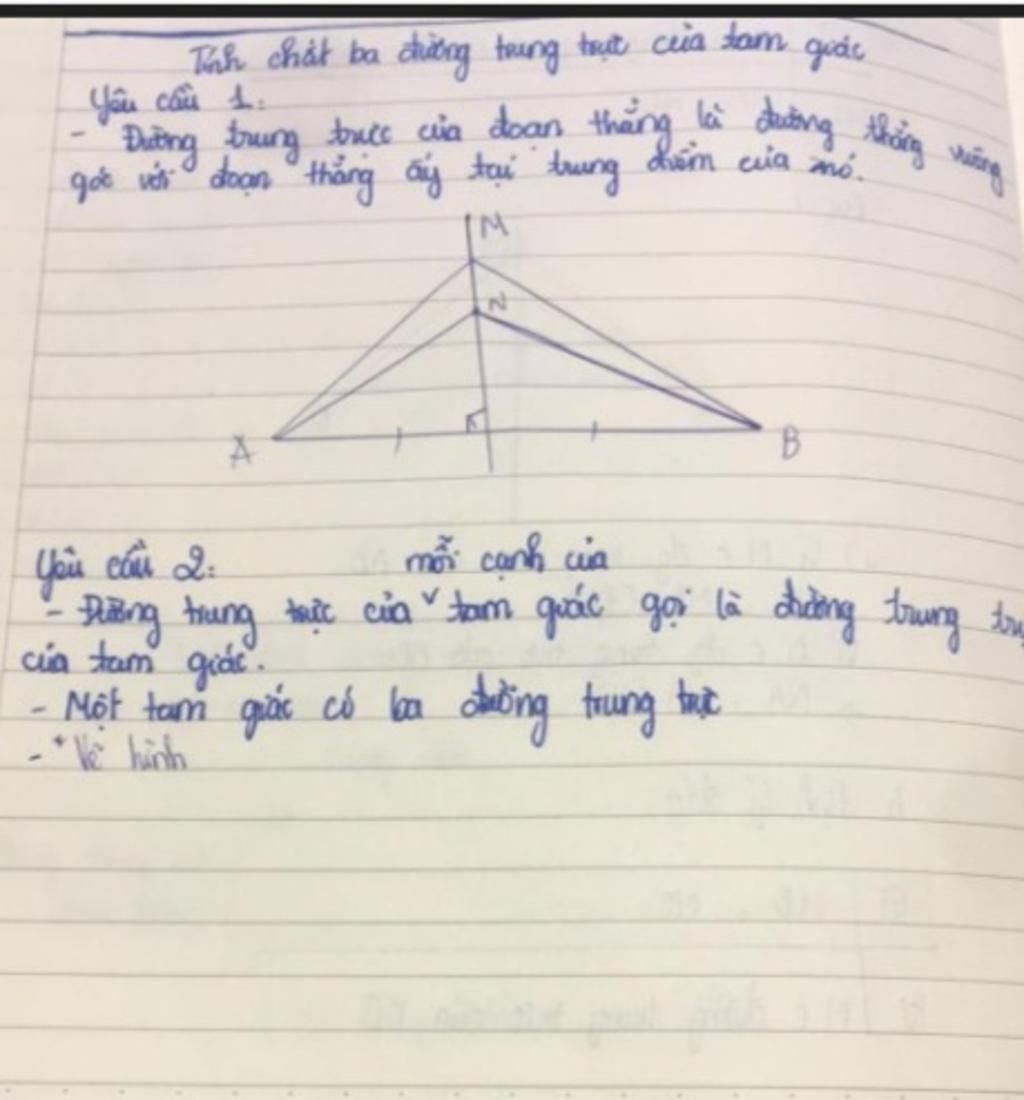 Tính chất ba đường trung trực của tam giác
Yêu cầu 1:
- Đường trung trực của đoạn thẳng là đường thẳng vuông
góc với đoạn thẳng ấy tại trung điểm của nó.
M
N
A
B
Yêu cầu 2:
- Đường trung trực của ˅ mỗi cạnh của tam giác gọi là đường trung trự
của tam giác.
- Một tam giác có ba đường trung trực
- * Vẽ hình